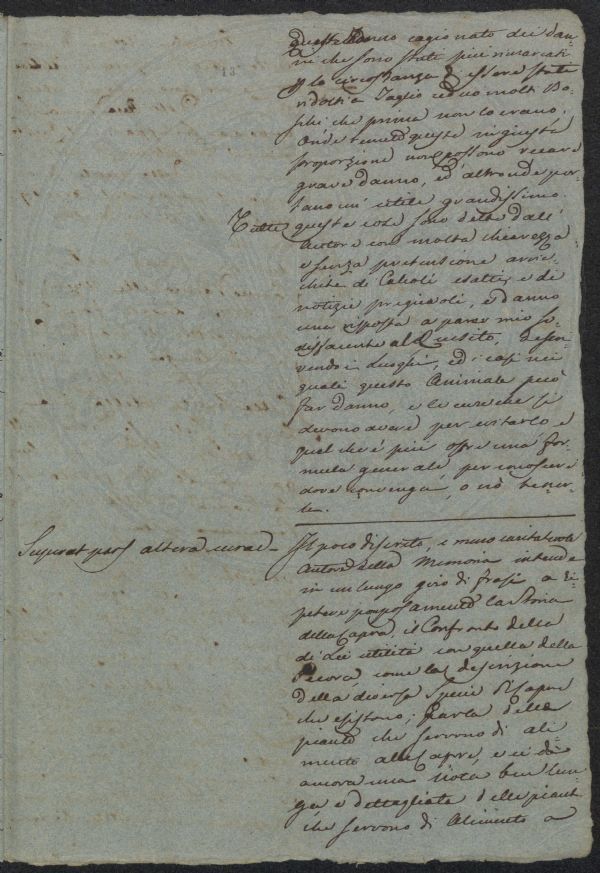 queste hanno cagionato dei dan-
ni che sono stati più rimarcati
p la circostanza di essere stati
ridotti a Taglio ceduo molti Bo-
schi che prima non lo erano.
Onde tenute queste in giusta
proporzione non possono recare
grave danno, ed altronde por-
tano un' utile grandissimo.
Tutte queste cose sono dette dall'
Autore con molta chiarezza
e senza pretensione arric-
chite di Calcoli esatti, e di
notizie pregievoli, ed danno
una risposta a parer mio so-
disfacente al Quesito, descri-
vendo i Luoghi, ed i casi nei
quali questo Animale può
far danno, e le cure che si
devono avere per evitarlo e
quel che è più offre una for-
mula generale per conoscere
dove convenga, o nò tener-
le.
Superat pars altera curae -
Il poco discreto, e meno caritatevole
Autore della Memoria intende
in un lungo giro di frasi a ri-
petere pomposamente la Storia
della Capra, il Confronto della
di Lei utilità con quella della
Pecora, come la descrizione
della diversa Specie di Capre
che esistono; parla delle
piante che servono di ali-
mento alle Capre, e ci dà
ancora una Nota ben lun-
ga e dettagliata delle piante
che servono di Alimento a